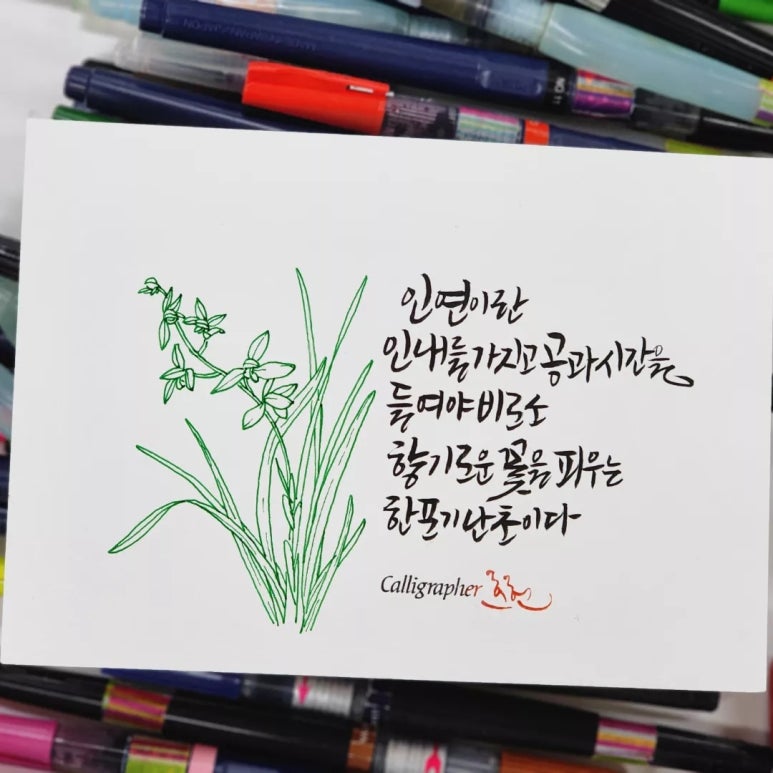 인연이란
인내를 가지고 공과 시간을
들여야 비로소
향기로운 꽃을 피우는
한 포기 난초이다
Calligrapher